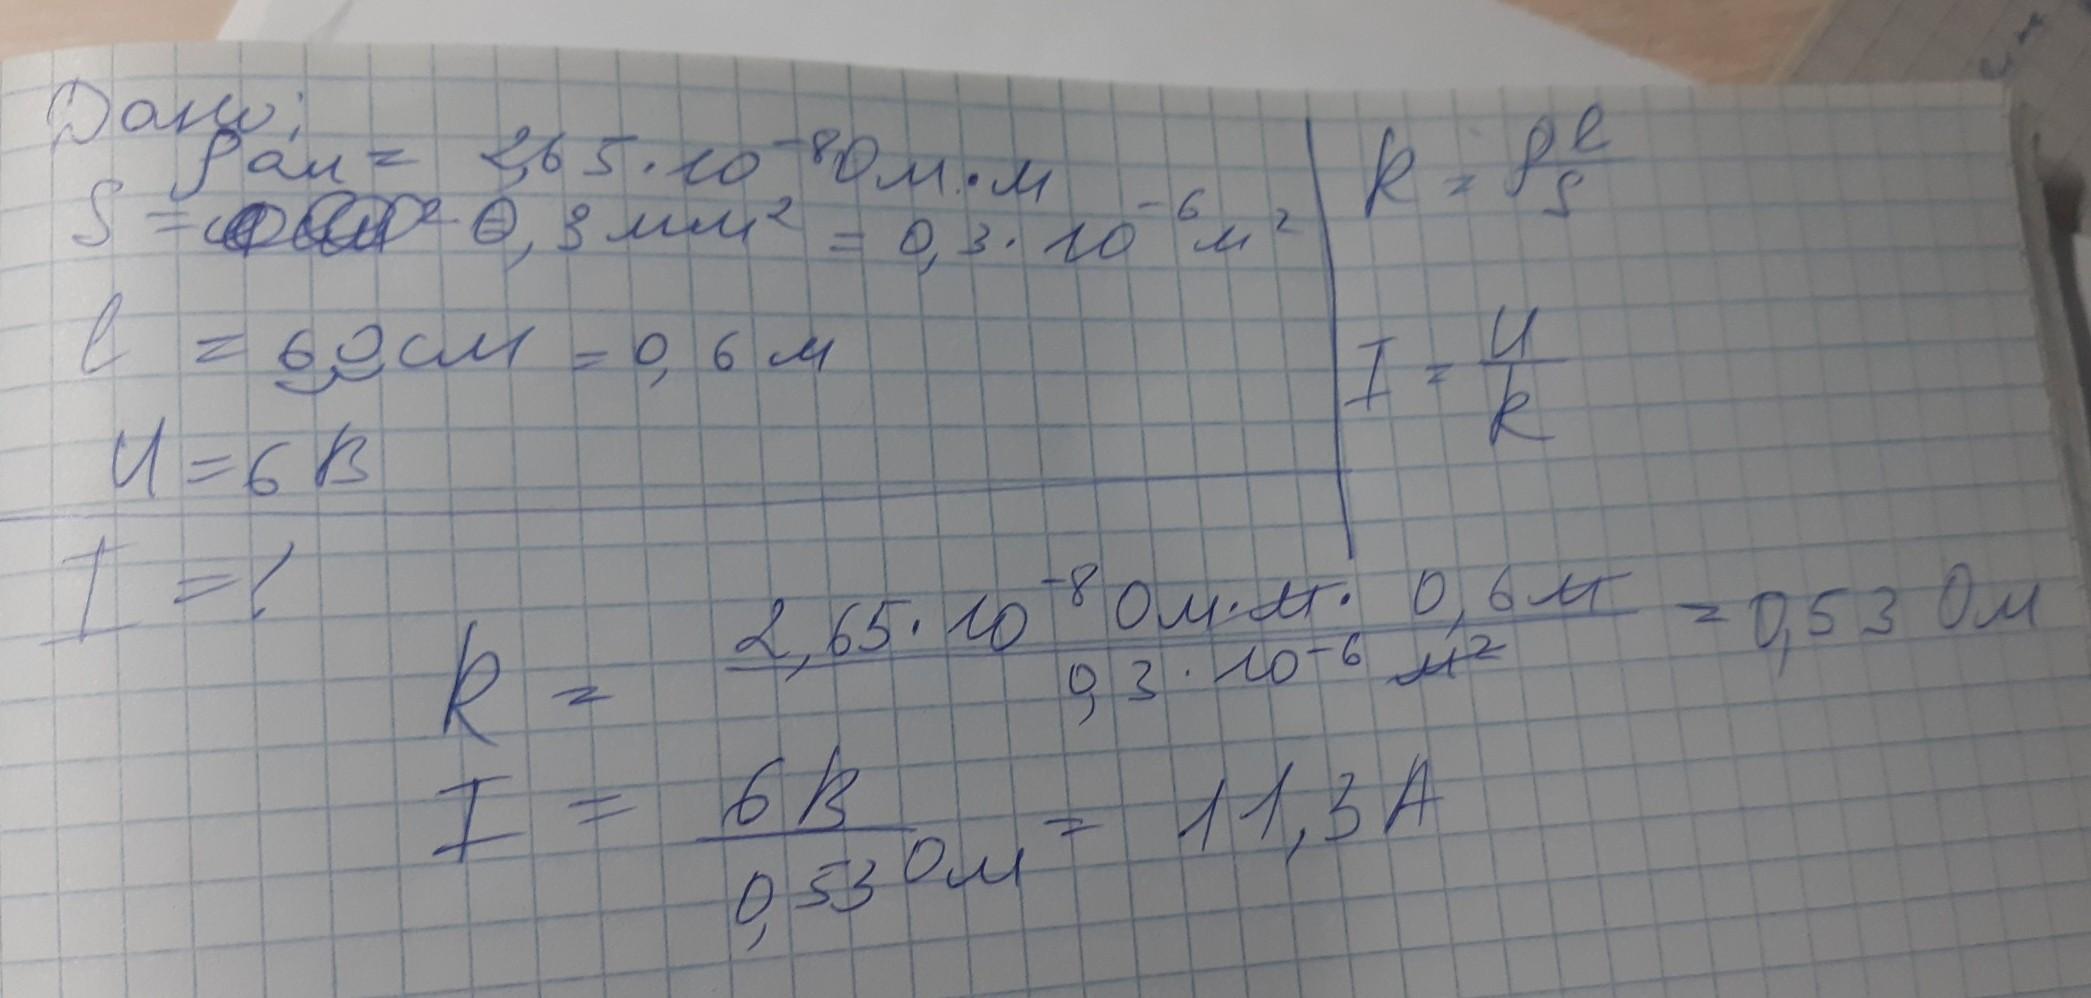 Дано:
ρ ал = 2,65 · 10⁻⁸ Ом · м
S = 0,3 мм² = 0,3 · 10⁻⁶ м²
l = 60 см = 0,6 м
U = 6 В
I = ?
R = ρ l/S
I = U/R
R = 2,65 · 10⁻⁸ Ом · м · 0,6 м / 0,3 · 10⁻⁶ м² = 0,53 Ом
I = 6 В / 0,53 Ом = 11,3 А